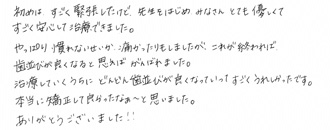 初めは、すごく緊張したけど、先生をはじめ、みなさん とても優しくて
すごく安心して治療できました。
やっぱり 慣れないせいか、痛かったりもしましたが、これが終われば、
歯並びが良くなると思えば がんばれました。
治療していくうちに どんどん歯並びが良くなっていって すごくうれしかったです。
本当に矯正して良かったなぁ～と思いました。
ありがとうございました!!